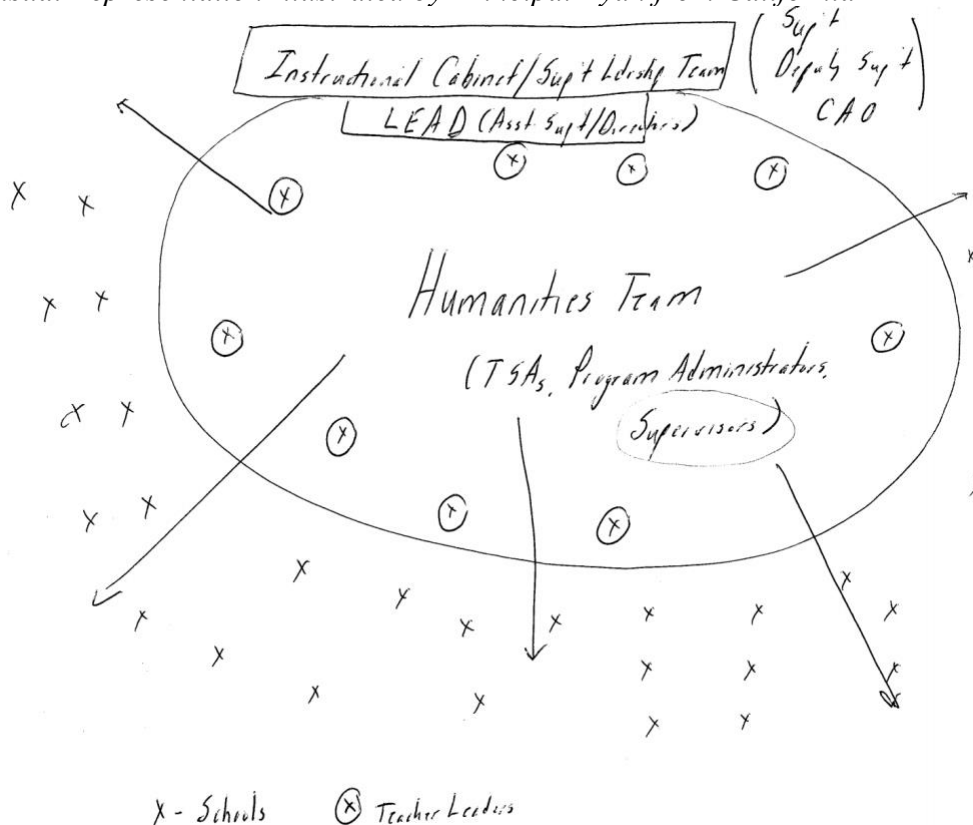 Instructional Cabinet/Sup't Ldrshp Team
(Sup't
Deputy Sup't
CAO)
LEAD (Asst. Sup't/Directors)
Humanities Team
(TSAs, Program Administrators,
Supervisors)
X - Schools
ⓧ Teacher Leaders